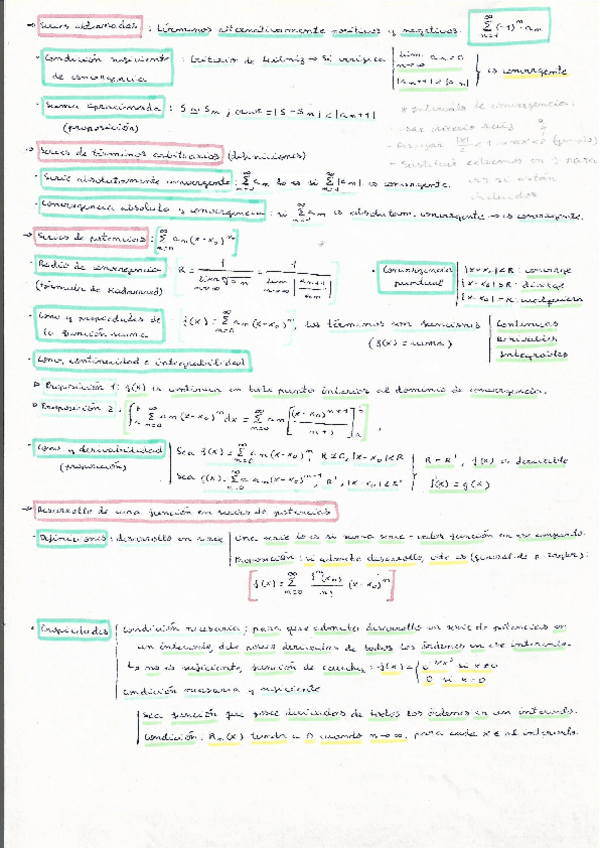 → Series alternadas : términos alternativamente positivos y negativos. ∞Σn=1 (-1)^n · a_n
· Condición suficiente de convergencia : Criterio de Leibniz → Si verifica | lim n→∞ a_n = 0
|a_n+1| < |a_n| } es convergente
· Suma aproximada : S ≈ S_n ; error = |S - S_n| < |a_n+1|
(proposición)
* Intervalo de convergencia.
- Usar criterio raíz
→ Series de términos arbitrarios (definiciones)
- Sustituir extremos en x para
ver si están
incluidos
· Serie absolutamente convergente : ∞Σn=0 a_n lo es si ∞Σn=0 |a_n| es convergente.
· Convergencia absoluta y convergencia : si ∞Σn=0 a_n es absolutam. convergente → es convergente.
→ Series de potencias : ∞Σn=0 a_n (x-x_0)^n
· Radio de convergencia R = 1 / lim n→∞ = 1 / lim n→∞ |a_n+1 / a_n|
(fórmula de Hadamard)
· Convergencia puntual | |x-x_0| < R : converge
|x-x_0| > R : diverge
|x-x_0| = R :
· Conv y propiedades de la función suma f(x) = ∞Σn=0 a_n (x-x_0)^n, los términos son funciones | Continuas
(f(x) = suma) | Derivables
Integrables
· Conv, continuidad e integrabilidad
▷ Proposición 1 : f(x) es continua en todo punto interior al dominio de convergencia.
▷ Proposición 2 : ∫ab ∞Σn=0 a_n (x-x_0)^n dx = ∞Σn=0 a_n [(x-x_0)^n+1 / n+1]ab
· Conv y derivabilidad | Sea f(x) = ∞Σn=0 a_n (x-x_0)^n |x-x_0| < R } R = R', f(x) es derivable
(proposición) | Sea g(x) = ∞Σn=0 (x-x_0)^n-1, R', |x-x_0| < R' } f'(x) = g(x)
→ Desarrollo de una función en series de potencias
· Definiciones : desarrollo en serie | Una serie lo es si suma serie = valor función en ese conjunto.
Proposición : si admite desarrollo, este es (general de Taylor) :
f(x) = ∞Σn=0 f^n(x_0) / n! (x-x_0)^n
· Propiedades | Condición necesaria : para que admita desarrollo en serie de potencias en
un intervalo, debe poseer derivadas de todos los órdenes en ese intervalo.
No es suficiente, función de Cauchy : f(x) = { e^-1/x² si x≠0
0 si x=0
Condición necesaria y suficiente
Sea función que posee derivadas de todos los órdenes en un intervalo.
Condición : R_n(x) tienda a 0 cuando n→∞, para cada x ∈ al intervalo.